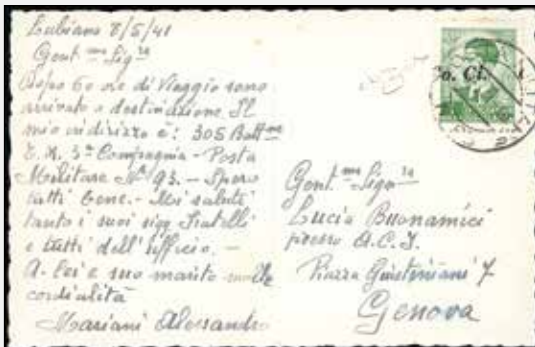 Lubiana 8/5/41
Gent.ma Sig.ra
Dopo 60 ore di Viaggio sono
arrivato a destinazione. Il
mio indirizzo è: 305 Batt.ne
3ª Compagnia - Posta
Militare Nº 93. - Spero
tutti bene. - Mi saluti
tanto i suoi sigg. Fratelli
e tutti dell'ufficio. -
A Lei e suo marito molte
cordialità
Mariani Alessandro
Co. Ci.
Gent.ma Sig.ra
Lucia Buonamici
presso A.C.I.
Piazza Giustiniani 7
Genova